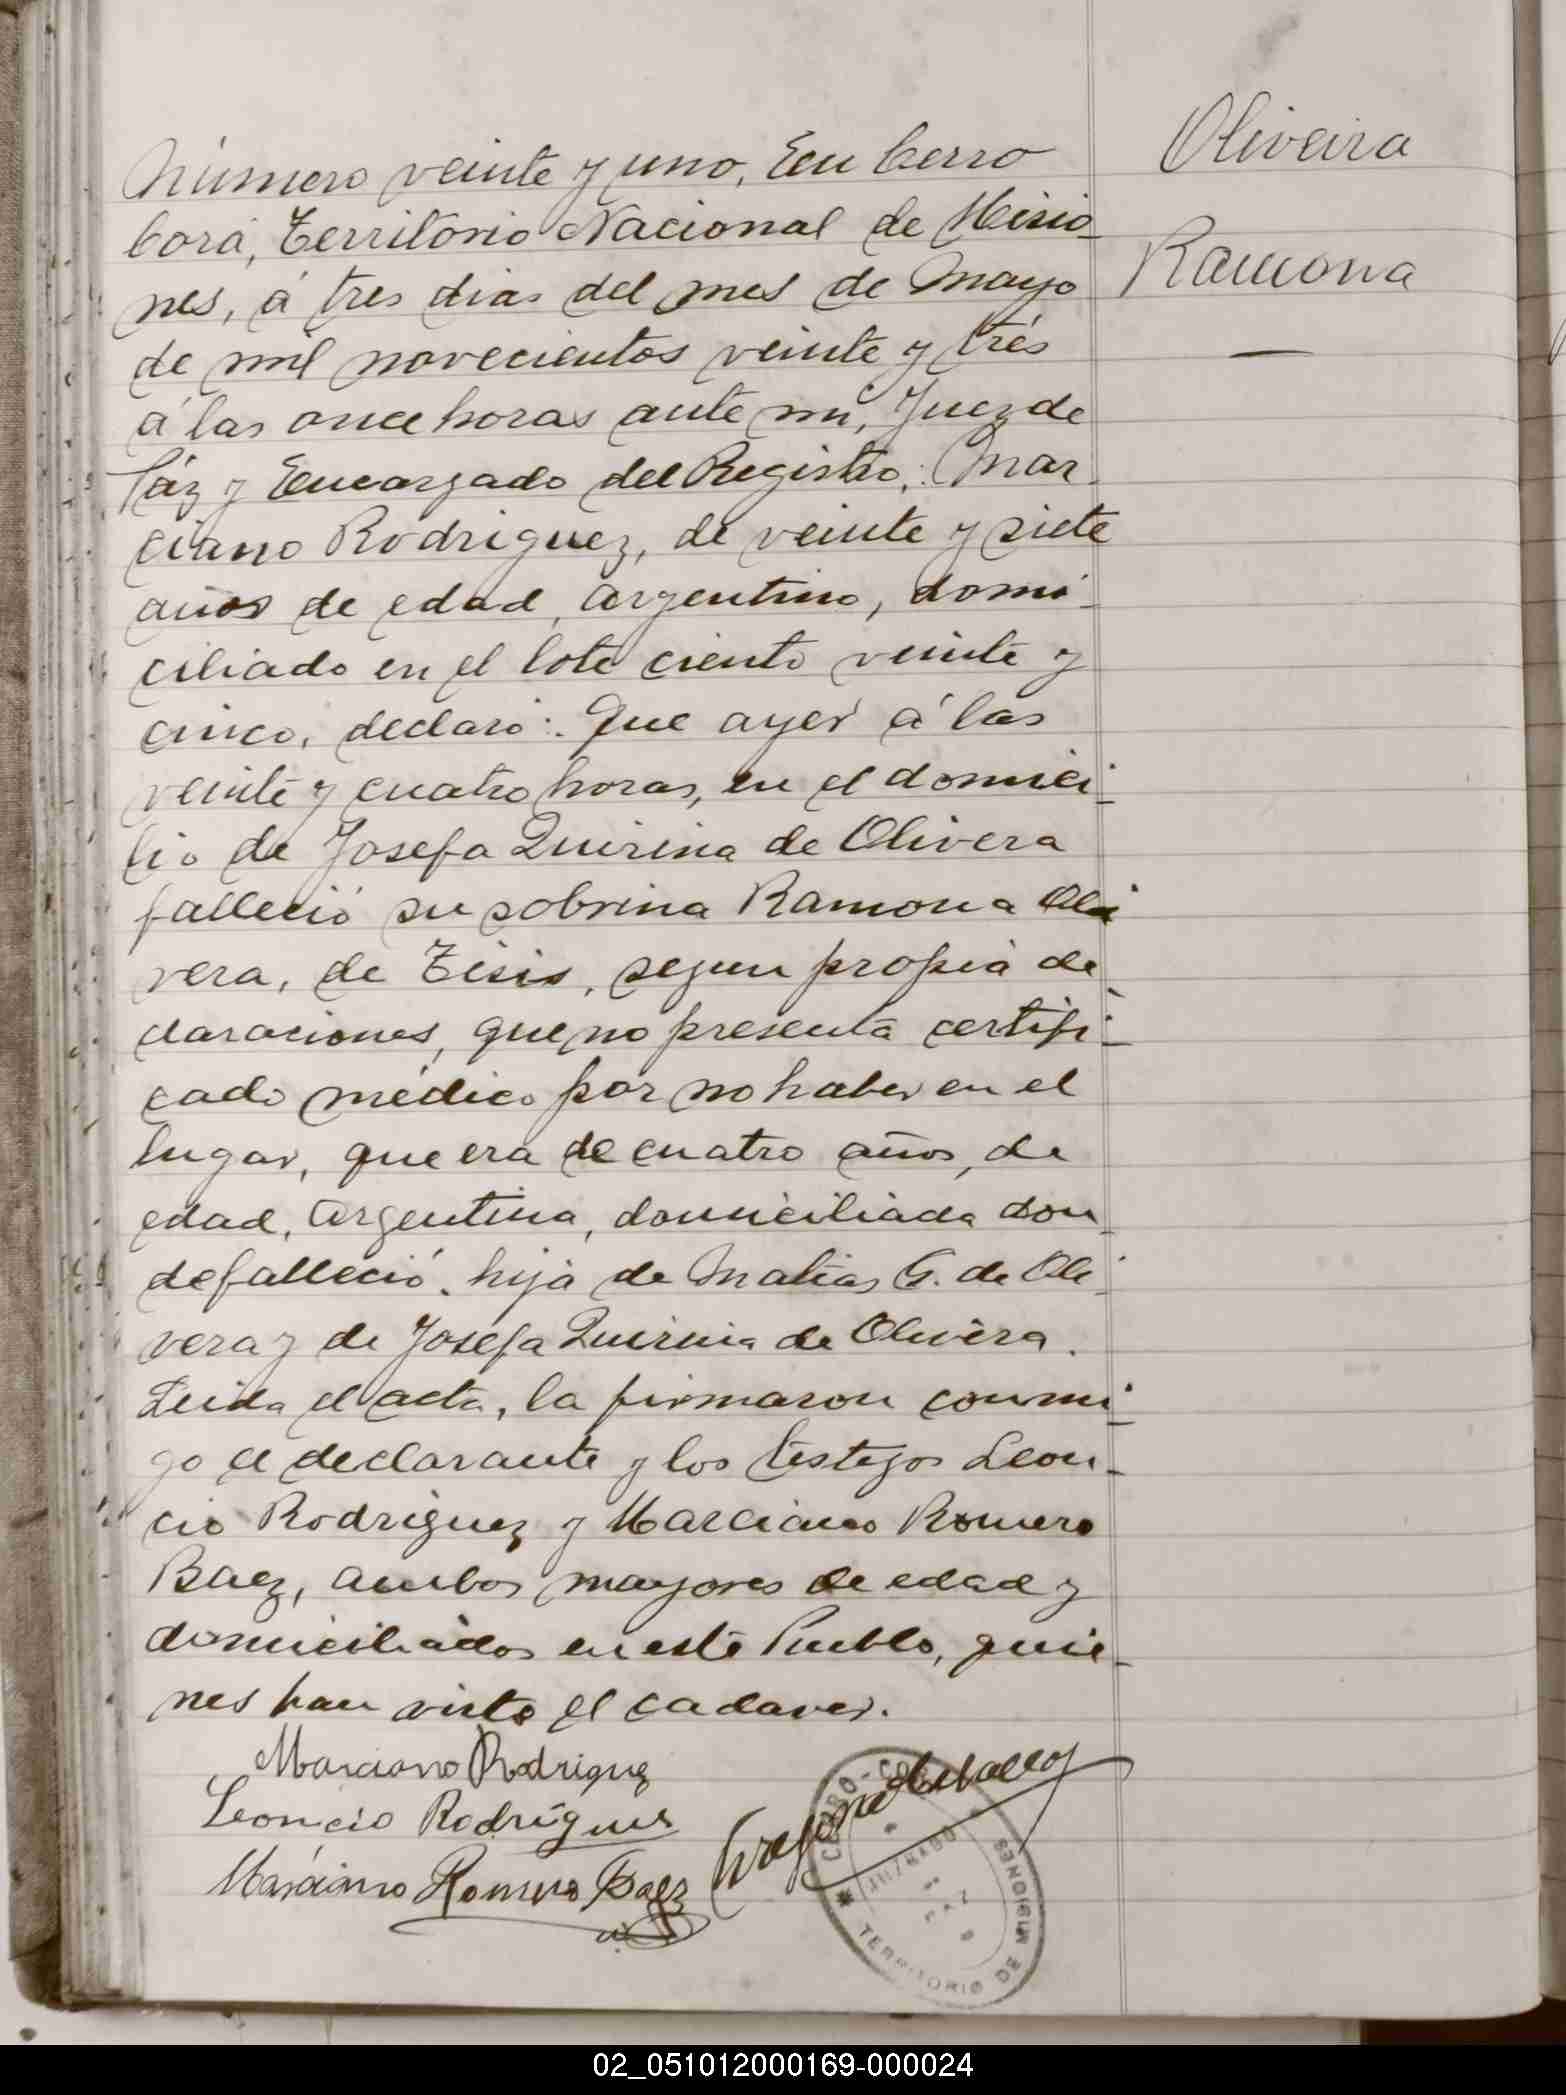 Oliveira
Ramona
Número veinte y uno, En Cerro
Corá, Territorio Nacional de Misio-
nes, á tres dias del mes de Mayo
de mil novecientos veinte y trés
á las once horas ante mi, Juez de
Páz y Encargado del Registro: Mar-
ciano Rodriguez, de veinte y siete
años de edad, Argentino, domi-
ciliado en el lote ciento veinte y
cinco, declaró: Que ayer á las
veinte y cuatro horas, en el domici-
lio de Josefa Quirina de Olivera
falleció su sobrina Ramona Oli-
vera, de Tisis, segun propia de
claraciones, que no presenta certifi-
cado médico por no haber en el
lugar, que era de cuatro años, de
edad, Argentina, domiciliada don-
de falleció. hija de Matias G. de Oli-
vera y de Josefa Quirina de Olivera.
Leida el acta, la firmaron conmi-
go el declarante y los testigos Leon-
cio Rodriguez y Marciano Romero
Baez, ambos mayores de edad y
domiciliados en este Pueblo, quie-
nes han visto el cadaver.
Marciano Rodriguez
Leoncio Rodríguez
Marciano Romero Baez
CERRO-CORÁ
JUZGADO
TERRITORIO DE MISIONES
02_051012000169-000024